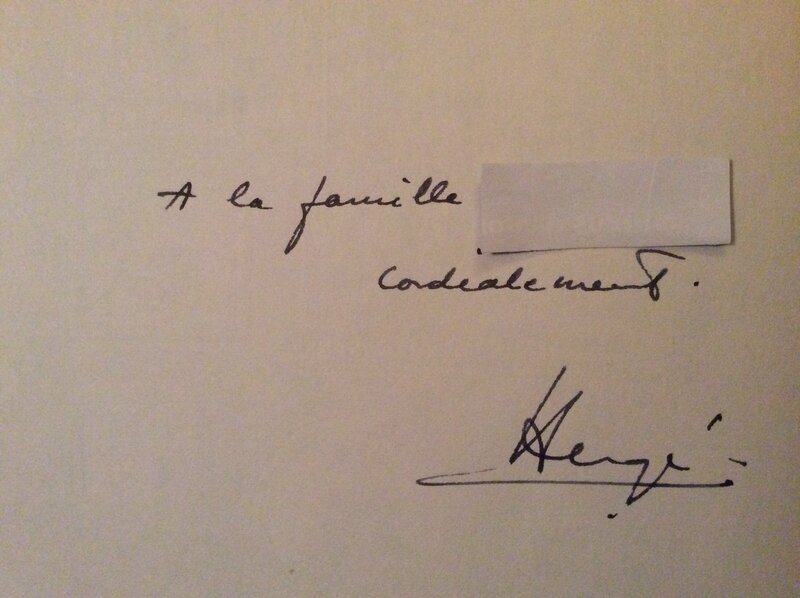 A la famille
Cordialement.
Hergé